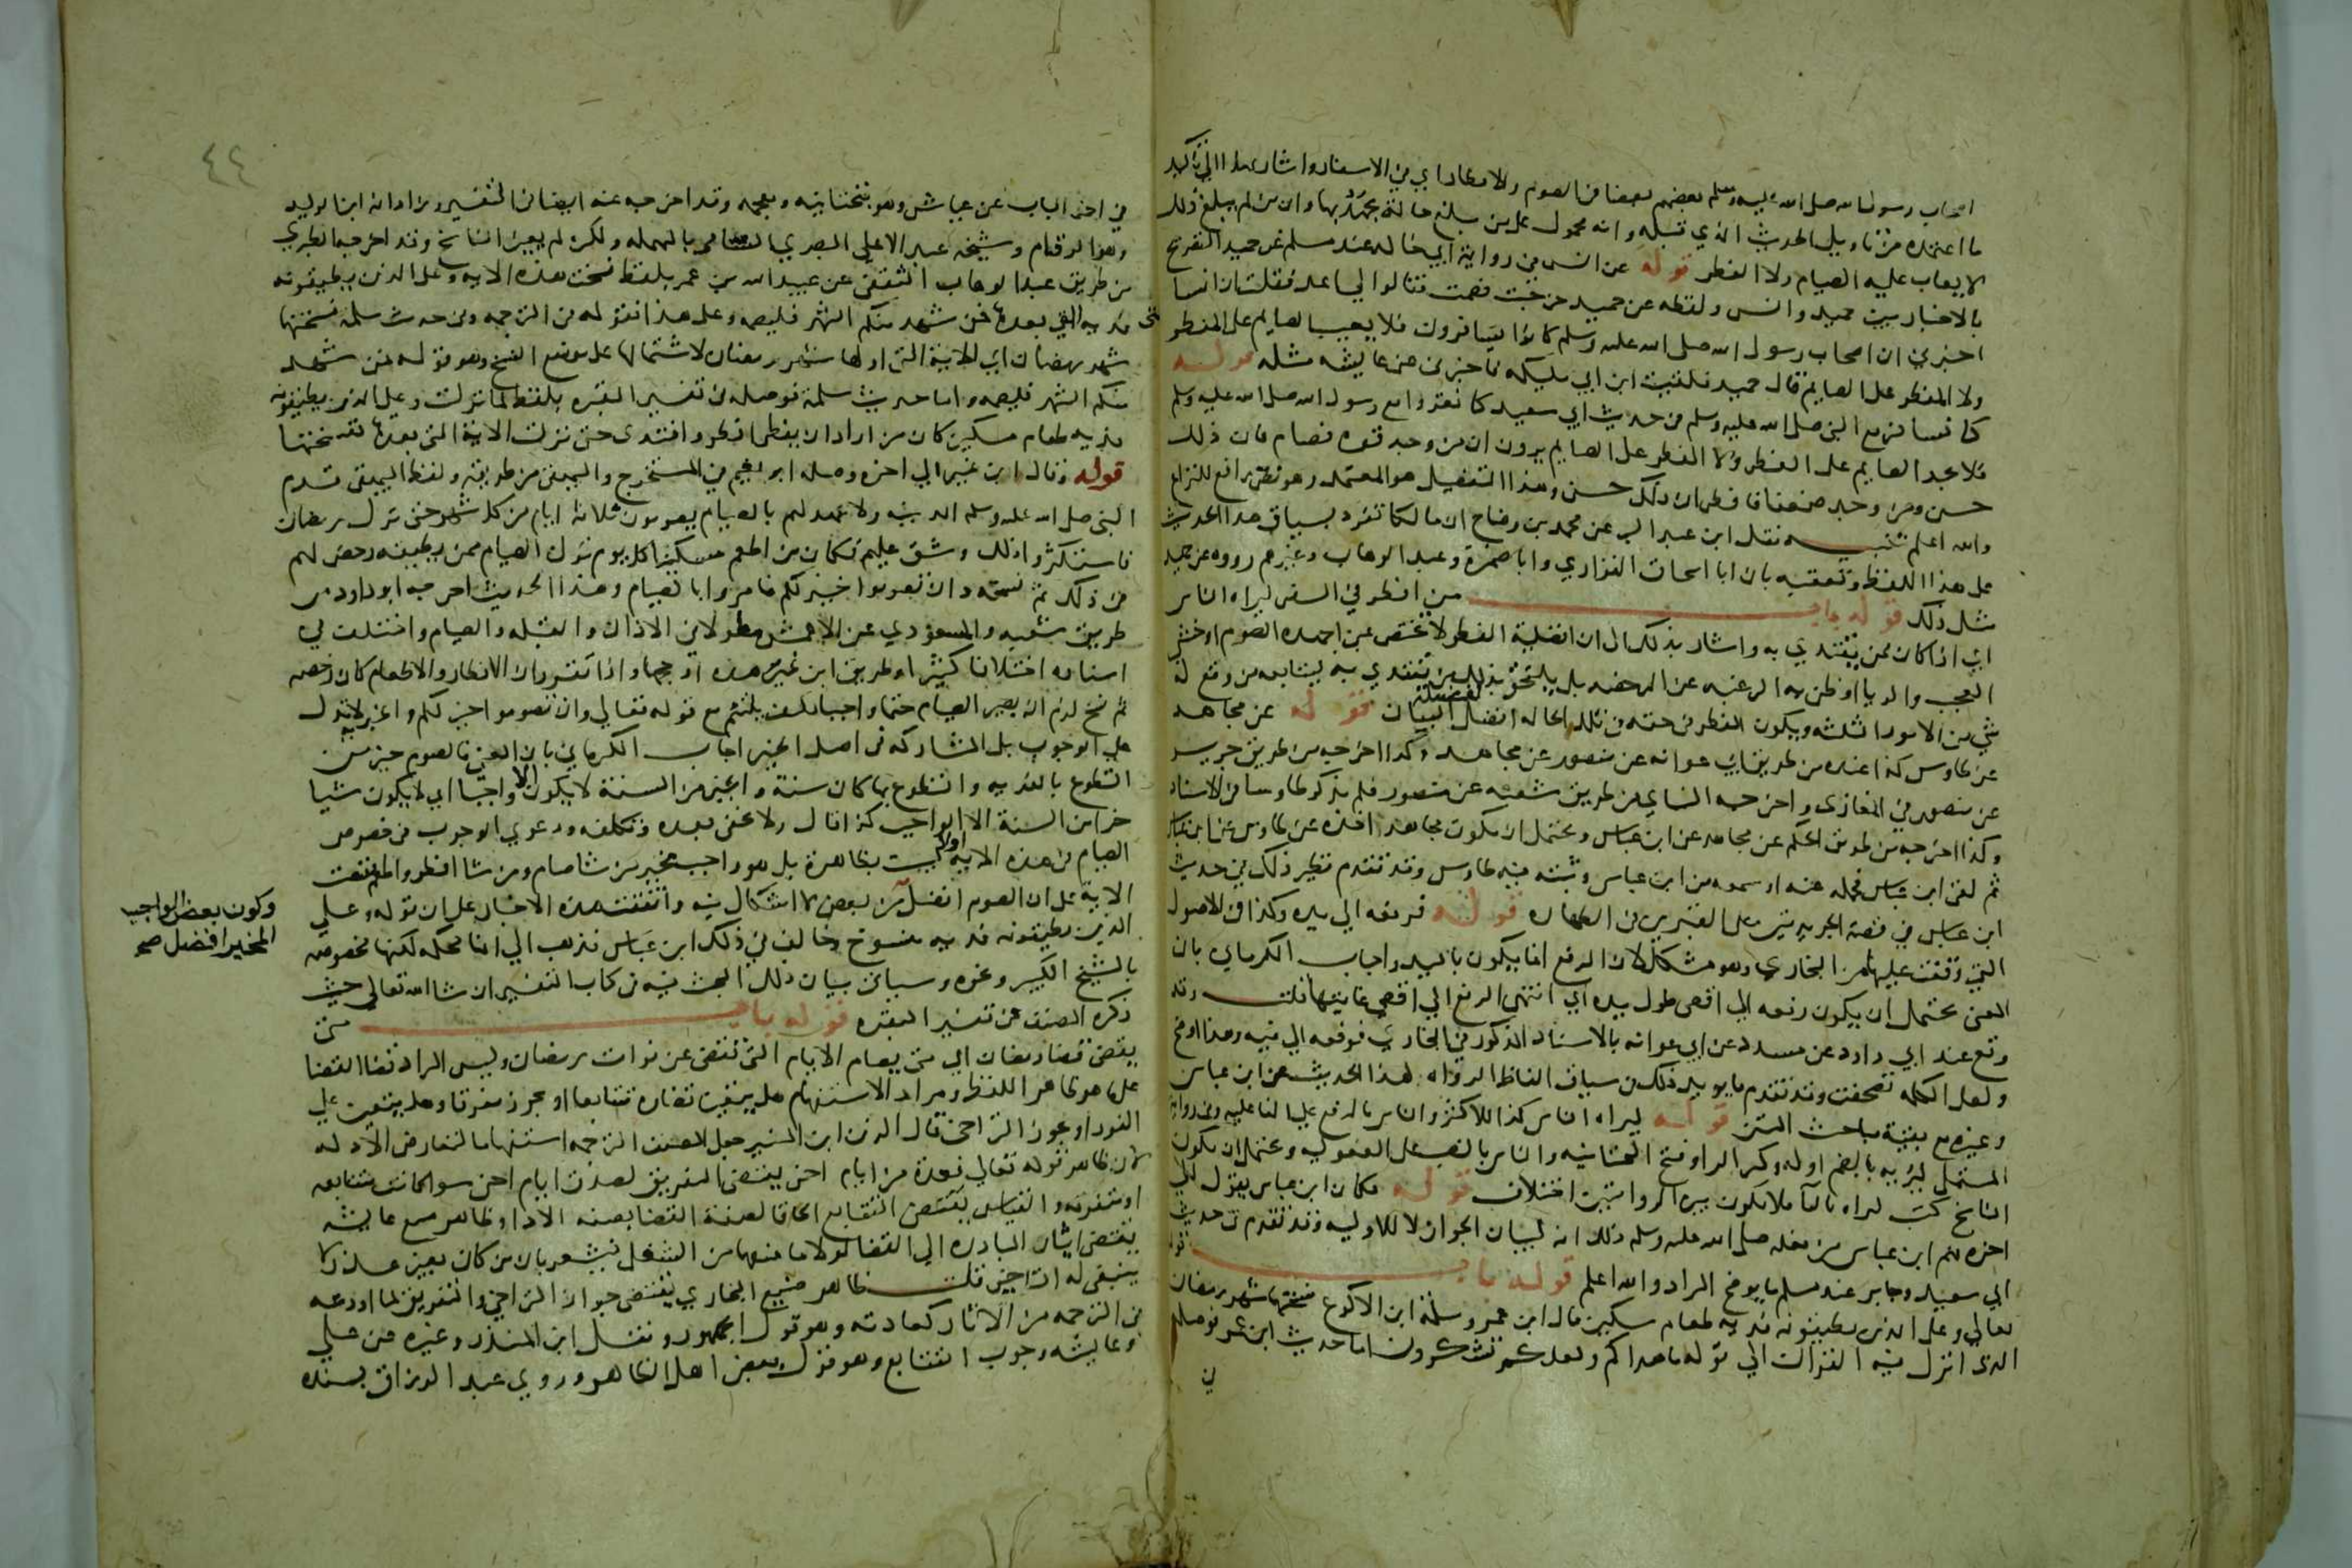 اصحاب رسول الله صلى الله عليه وسلم بعضهم بعضا في الصوم والافطار اي في الاسفار واشار بهذا الى تاكيد
ما اعتمده من تاويل الحديث الذي قبله وانه محمول على من بلغ حالة يجهد بها وان من لم يبلغ ذلك
لا يعاب عليه الصيام ولا الفطر قوله عن انس في رواية ابي خالد عند مسلم عن حميد التصريح
بالاخبار بين حميد وانس ولفظه عن حميد خرجت فصمت فقالوا لي اعد فقلت ان انسا
اخبرني ان اصحاب رسول الله صلى الله عليه وسلم كانوا يسافرون فلا يعيب الصايم على المفطر
ولا المفطر على الصايم قال حميد فلقيت ابن ابي مليكه فاخبرني عن عايشه مثله قوله
كنا نسافر مع النبي صلى الله عليه وسلم في حديث ابي سعيد كنا نغزوا مع رسول الله صلى الله عليه وسلم
فلا يجد الصايم على المفطر ولا المفطر على الصايم يرون ان من وجد قوه فصام فان ذلك
حسن ومن وجد ضعفا فافطر ان ذلك حسن وهذا التفصيل هو المعتمد وهو نص رافع للنزاع
والله اعلم تنبيه نقل ابن عبد البر عن محمد بن وضاح ان مالكا تفرد بسياق هذا الحديث
على هذا اللفظ وتعقبه بان ابا اسحاق الفزاري وابا ضمرة وعبد الوهاب وغيرهم رووه عن حميد
مثل ذلك قوله باب من افطر في السفر ليراه الناس
اي اذا كان ممن يقتدي به واشار بذلك الى ان افضلية الفطر لا تختص بمن اجهده الصوم او خشي
العجب والريا او ظن به الرغبه عن الرخصه بل يلتحق بذلك من يقتدي به ليتابعه من وقع له
شي من الامور الثلثه ويكون الفطر في حقه في تلك الحاله افضل لفضيلة البيان قوله عن مجاهد
عن طاوس كذا عنده من طريق ابي عوانه عن منصور عن مجاهد وكذا اخرجه من طريق جرير
عن منصور في المغازي واخرجه النساي من طريق شعبه عن منصور فلم يذكر طاوسا في الاسناد
وكذا اخرجه من طريق الحكم عن مجاهد عن ابن عباس ويحتمل ان يكون مجاهد اخذه عن طاوس عن ابن عباس
ثم لقي ابن عباس فحمله عنه او سمعه من ابن عباس وثبته فيه طاوس وقد تقدم نظير ذلك في حديث
ابن عباس في قصة الجريدتين على القبرين في الطهاره قوله فرفعه الى يده وكذا في الاصول
التي وقفت عليها من البخاري وهو مشكل لان الرفع انما يكون باليد واجاب الكرماني بان
المعنى يحتمل ان يكون رفعه الى اقصى طول يده اي انتهى الرفع الى اقصى غايتها قلت وقد
وقع عند ابي داود عن مسدد عن ابي عوانه بالاسناد المذكور في البخاري فرفعه الى فيه وهذا اوضح
ولعل الكلمه تصحفت وقد تقدم ما يويد ذلك في سياق الفاظ الرواه لهذا الحديث عن ابن عباس
وغيره مع بقية مباحث المتن قوله ليراه الناس كذا للاكثر والناس بالرفع على الفاعليه وفي رواية
المستملي ليريه بالضم اوله وكسر الرا وفتح التحتانيه والناس بالنصب على المفعوليه ويحتمل ان يكون
الناسخ كتب ليراه باليا فلا يكون بين الروايتين اختلاف قوله فكان ابن عباس يقول الى
اخره فهم ابن عباس من فعله صلى الله عليه وسلم ذلك انه لبيان الجواز لا للاولويه وقد تقدم في حديث
ابي سعيد وجابر عند مسلم ما يوضح المراد والله اعلم قوله باب قوله
تعالى وعلى الذين يطيقونه فدية طعام مسكين قال ابن عمر وسلمة ابن الاكوع نسختها شهر رمضان
الذي انزل فيه القرآن الى قوله ما هداكم ولعلكم تشكرون اما حديث ابن عمر فوصله
في
٤٢
في اخر الباب عن عياش وهو بتحتانيه ومعجمه وقد اخرجه عنه ايضا في التفسير وزاد انه ابن الوليد
وهو الرقام وشيخه عبد الاعلى البصري السامي بالمهمله ولكن لم يعين الناسخ وقد اخرجه الطبري
من طريق عبد الوهاب الثقفي عن عبيد الله بن عمر بلفظ نسخت هذه الايه وعلى الذين يطيقونه
فديه التي بعدها فمن شهد منكم الشهر فليصمه وعلى هذا فقوله في الترجمه وفي حديث سلمه نسختها
شهر رمضان اي الاية التي اولها شهر رمضان لاشتمالها على موضع النسخ وهو قوله فمن شهد
منكم الشهر فليصمه واما حديث سلمة فوصله في تفسير البقره بلفظ لما نزلت وعلى الذين يطيقونه
فديه طعام مسكين كان من اراد ان يفطر افطر وافتدى حتى نزلت الاية التي بعدها فنسختها
قوله وقال ابن نمير الى اخره وصله ابو نعيم في المستخرج والبيهقي من طريقه ولفظ البيهقي قدم
النبي صلى الله عليه وسلم المدينه ولا عهد لهم بالصيام يصومون ثلاثة ايام من كل شهر حتى نزل رمضان
فاستكثروا ذلك وشق عليهم فكان من اطعم مسكينا كل يوم ترك الصيام ممن يطيقه رخص لهم
في ذلك ثم نسخه وان تصوموا خير لكم فامروا بالصيام وهذا الحديث اخرجه ابو داود من
طريق شعبه والمسعودي عن الاعمش مطولا في الاذان والقبله والصيام واختلف في
اسناده اختلافا كثيرا وطريق ابن نمير هذه ارجحها واذا تقرر ان الافطار والاطعام كان رخصه
ثم نسخ لزم ان يصير الصيام حتما واجبا فكيف يلتئم مع قوله تعالى وان تصوموا خير لكم والخيرية لا تدل
على الوجوب بل المشاركه في اصل الخير اجاب الكرماني بان المعنى فالصوم خير من
التطوع بالفديه والتطوع بها كان سنة والخير من السنة لا يكون الا واجبا اي لا يكون شيا
خيرا من السنة الا الواجب كذا قال ولا يخفى بعده وتكلفه ودعوى الوجوب في خصوص
الصيام في هذه الايه ليست بظاهرة بل هو واجب مخير من شا صام ومن شا افطر واطعم فنصت
الاية على ان الصوم افضل وكون بعض الواجب المخير افضل من بعض لا اشكال فيه واتفقت هذه الاخبار على ان قوله وعلى
الذين يطيقونه فديه منسوخ وخالف في ذلك ابن عباس فذهب الى انها محكمه لكنها مخصوصه
بالشيخ الكبير ونحوه وسياتي بيان ذلك البحث فيه في كتاب التفسير ان شا الله تعالى حيث
ذكره المصنف في تفسير البقره قوله باب متى
يقضى قضا رمضان اي متى يصام الايام التي تقضى عن فوات رمضان وليس المراد قضا القضا
على ما هو ظاهر اللفظ ومراد الاستفهام هل يتعين قضاوه متتابعا او يجوز متفرقا وهل يتعين على
الفور او يجوز التراخي قال الزين ابن المنير جعل المصنف الترجمه استفهاما لتعارض الادله
لان ظاهر قوله تعالى فعدة من ايام اخر يقتضي التفريق لصدق ايام اخر سوا كانت متتابعه
او متفرقه والقياس يقتضي التتابع الحاقا لصفة القضا بصفة الادا وظاهر صنيع عايشه
يقتضي ايثار المبادره الى القضا لولا ما منعها من الشغل فيشعر بان من كان بغير عذر لا
ينبغي له التاخير قلت ظاهر صنيع البخاري يقتضي جواز التراخي والتفريق لما اودعه
في الترجمه من الاثار كعادته وهو قول الجمهور ونقل ابن المنذر وغيره عن علي
وعايشه وجوب التتابع وهو قول بعض اهل الظاهر وروى عبد الرزاق بسنده
وكون بعض الواجب
المخير افضل صح